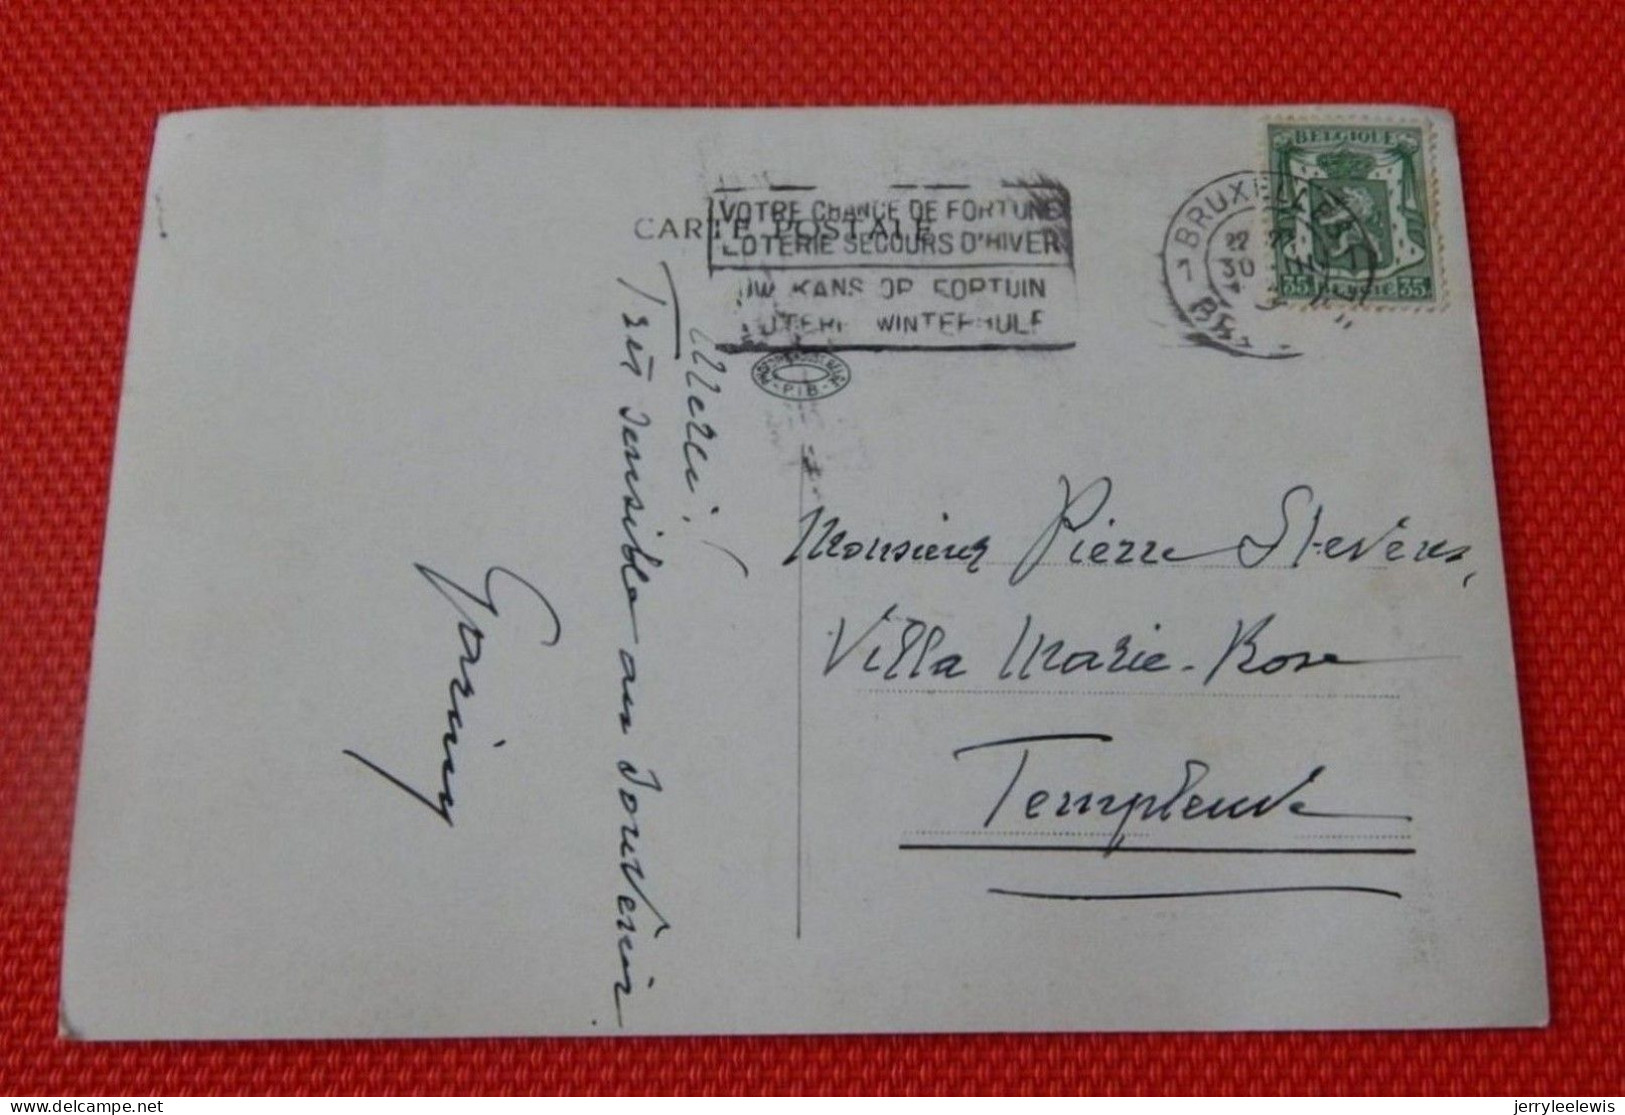 CARTE POSTALE
VOTRE CHANCE DE FORTUNE
LOTERIE SECOURS D'HIVER
UW KANS OP FORTUIN
LOTERIE WINTERHULP
BELGIQUE
35 BELGIE 35
1 BRUXELLES
22
30 III
P.I.B.
Merci!
Très sensible au souvenir
Monsieur Pierre Stevens,
Villa Marie-Rose
Templeuve
delcampe.net
jerryleelewis